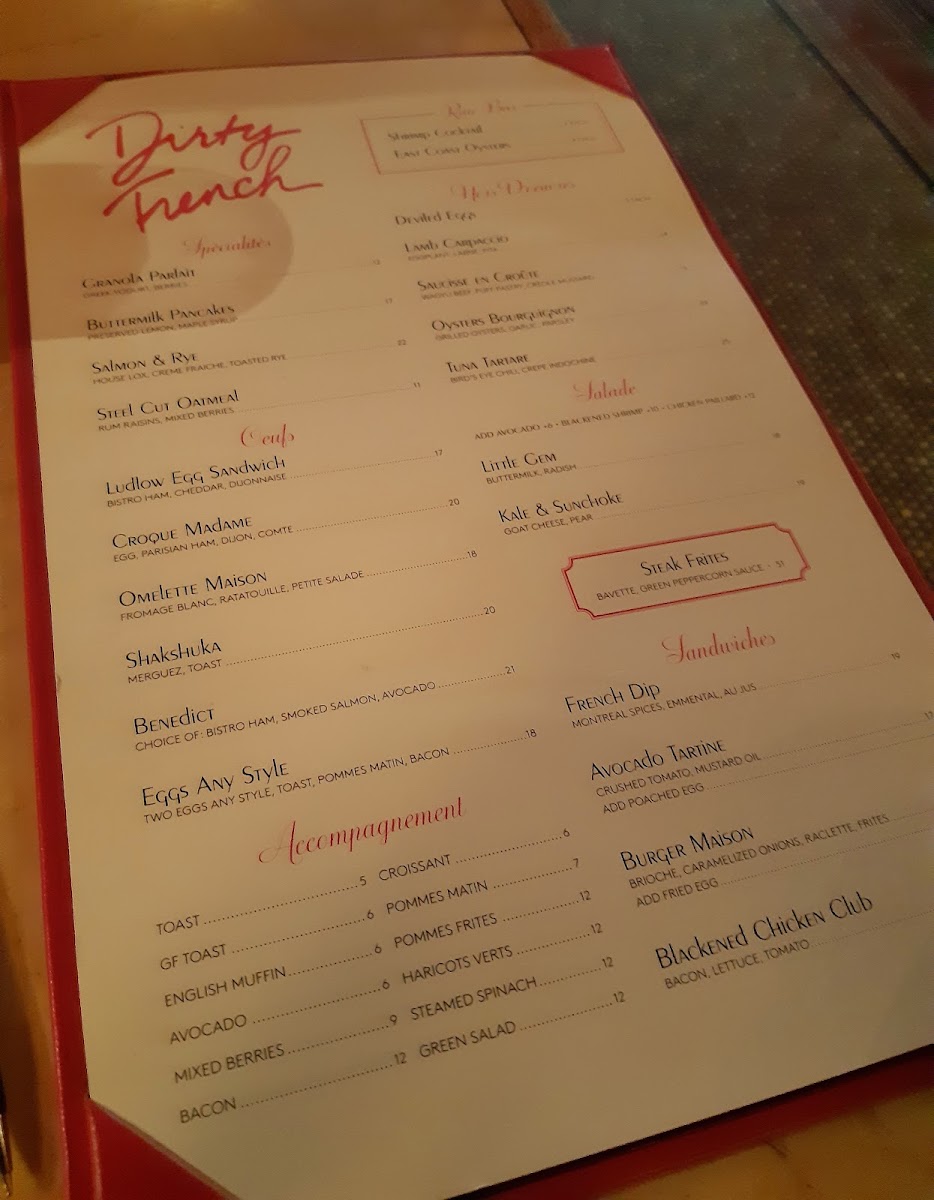 Dirty
French
Spécialités
Granola Parfait 12
GREEK YOGURT, BERRIES
Buttermilk Pancakes 17
PRESERVED LEMON, MAPLE SYRUP
Salmon & Rye 22
HOUSE LOX, CREME FRAICHE, TOASTED RYE
Steel Cut Oatmeal 11
RUM RAISINS, MIXED BERRIES
Oeufs
Ludlow Egg Sandwich 17
BISTRO HAM, CHEDDAR, DIJONNAISE
Croque Madame 20
EGG, PARISIAN HAM, DIJON, COMTE
Omelette Maison 18
FROMAGE BLANC, RATATOUILLE, PETITE SALADE
Shakshuka 20
MERGUEZ, TOAST
Benedict 21
CHOICE OF: BISTRO HAM, SMOKED SALMON, AVOCADO
Eggs Any Style 18
TWO EGGS ANY STYLE, TOAST, POMMES MATIN, BACON
Accompagnement
TOAST 5
GF TOAST 6
ENGLISH MUFFIN 6
AVOCADO 6
MIXED BERRIES 9
BACON 12
CROISSANT 6
POMMES MATIN 7
POMMES FRITES 12
HARICOTS VERTS 12
STEAMED SPINACH 12
GREEN SALAD 12
Raw Bar
Shrimp Cocktail
East Coast Oysters
Hors D'oeuvres
Deviled Eggs
Lamb Carpaccio
EGGPLANT,
Saucisse en Croûte
WAGYU BEEF, PUFF PASTRY, CREOLE MUSTARD
Oysters Bourguignon
GRILLED OYSTERS, GARLIC, PARSLEY
Tuna Tartare 25
BIRD'S EYE CHILI, CREPE INDOCHINE
Salade
ADD AVOCADO +6 • BLACKENED SHRIMP +10 • CHICKEN PAILLARD +12
Little Gem 18
BUTTERMILK, RADISH
Kale & Sunchoke 19
GOAT CHEESE, PEAR
Steak Frites
BAVETTE, GREEN PEPPERCORN SAUCE · 31
Sandwiches
French Dip 19
MONTREAL SPICES, EMMENTAL, AU JUS
Avocado Tartine 17
CRUSHED TOMATO, MUSTARD OIL
ADD POACHED EGG
Burger Maison
BRIOCHE, CARAMELIZED ONIONS, RACLETTE, FRITES
ADD FRIED EGG
Blackened Chicken Club
BACON, LETTUCE, TOMATO